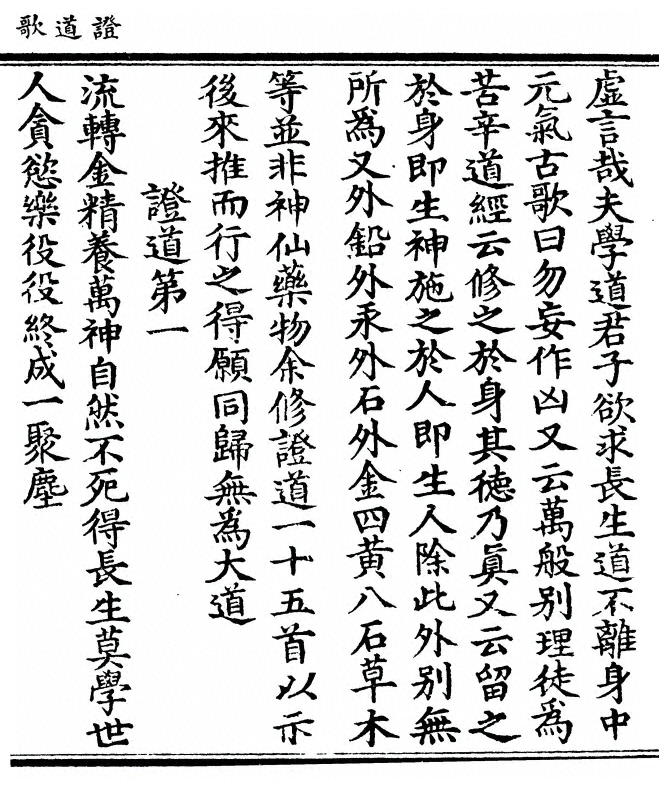 證道歌
虛言哉夫學道君子欲求長生道不離身中
元氣古歌曰勿妄作凶又云萬般别理徒爲
苦辛道經云修之於身其德乃眞又云留之
於身即生神施之於人即生人除此外别無
所爲又外鉛外汞外石外金四黃八石草木
等並非神仙藥物余修證道一十五首以示
後來推而行之得願同歸無爲大道
證道第一
流轉金精養萬神自然不死得長生莫學世
人貪慾樂役役終成一聚塵